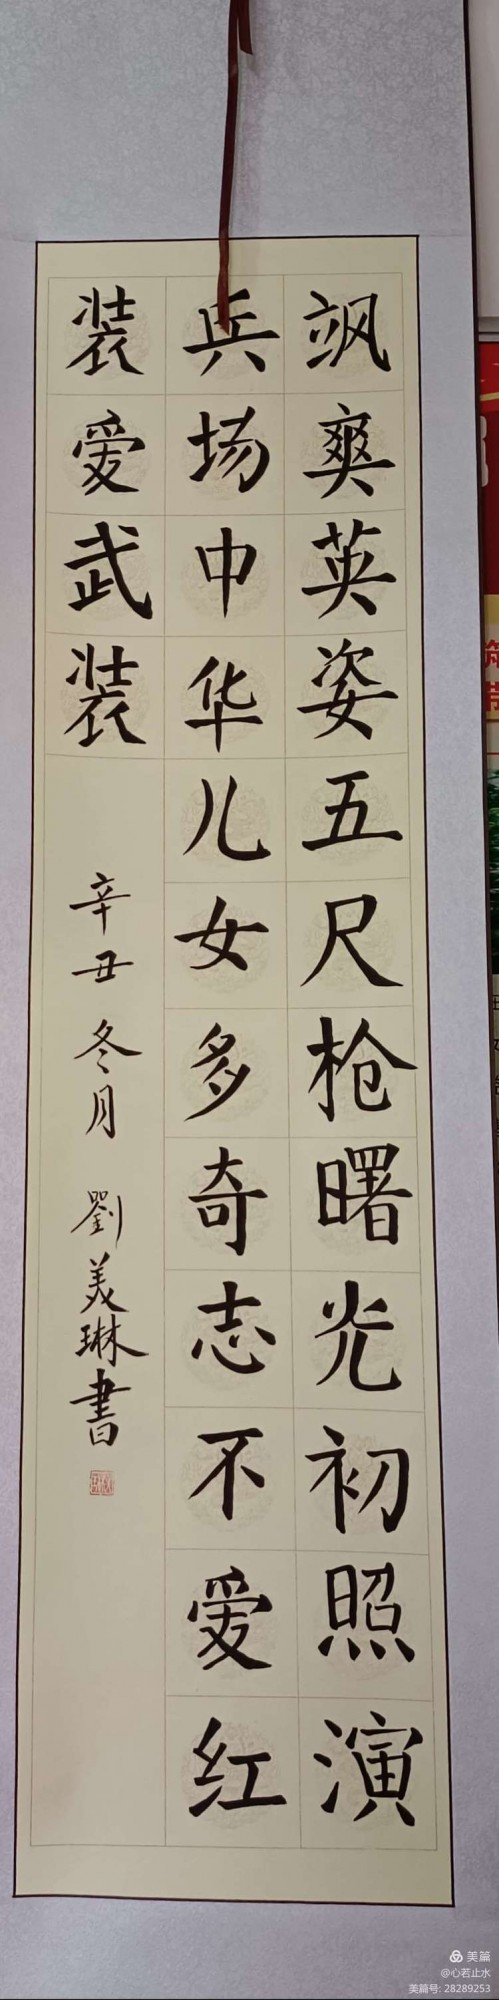 飒爽英姿五尺枪曙光初照演
兵场中华儿女多奇志不爱红
装爱武装
辛丑冬月劉美琳書
美篇
@心若止水
美篇号: 28289253